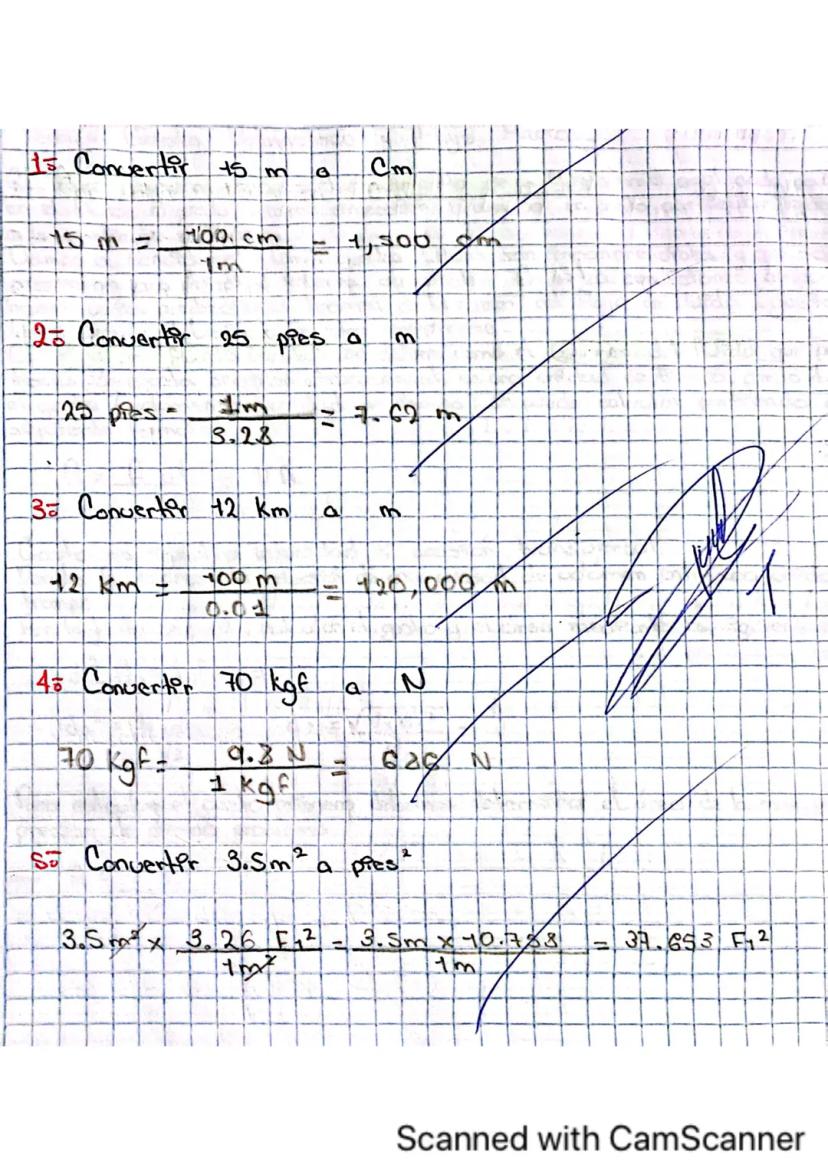 1º Convertir 15 m a Cm
15 m = 100 cm / 1m = 1,500 cm
2º Convertir 25 pies a m
25 pies = 1m / 3.28 = 7.62 m
3º Convertir 12 km a m
12 Km = 100 m / 0.01 = 120,000 m
4º Convertir 70 kgf a N
70 Kgf = 9.8 N / 1 kgf = 686 N
5º Convertir 3.5m² a pies²
3.5m² x 3.26 Ft² / 1m² = 3.5m x 10.758 / 1m = 37.653 Ft²
Scanned with CamScanner